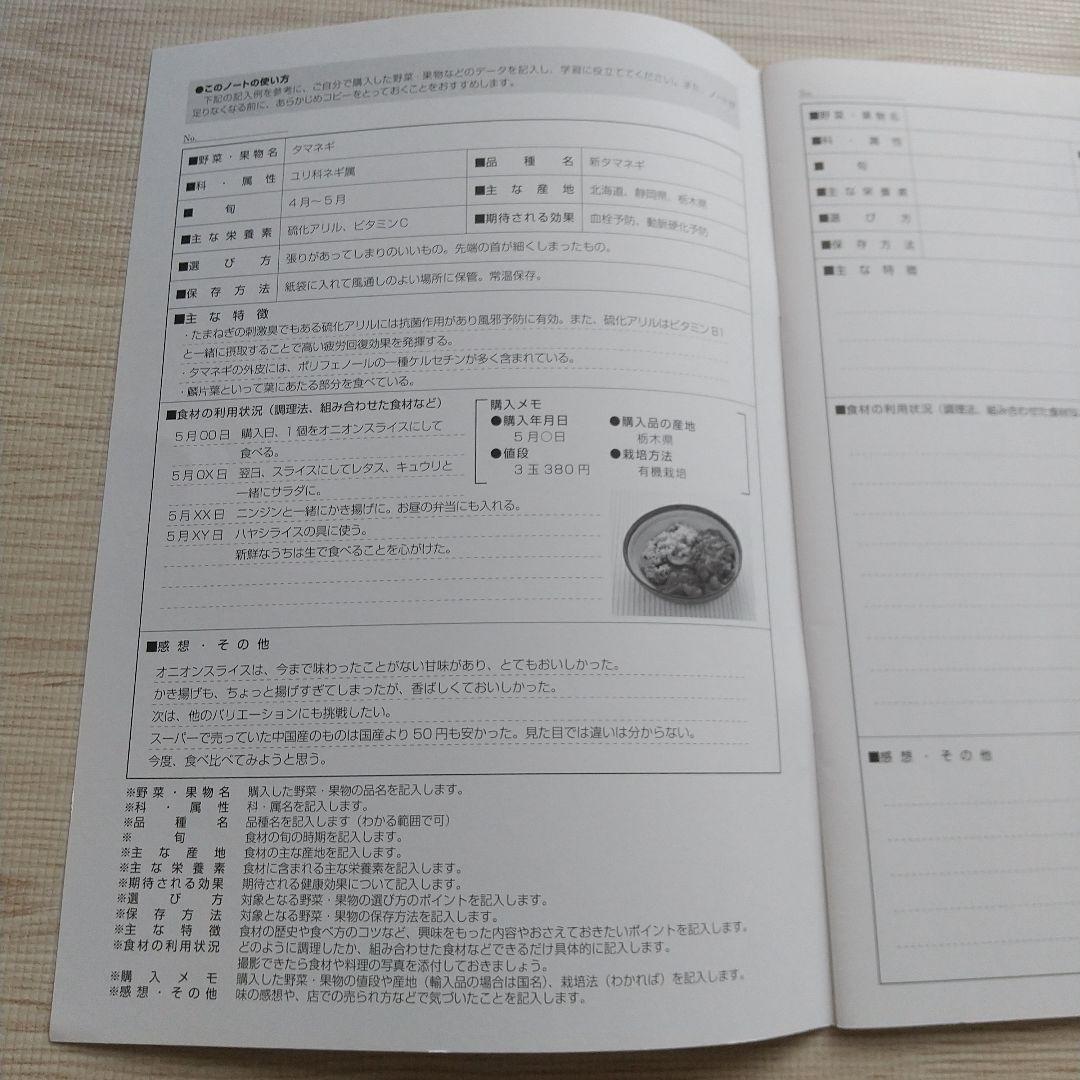 ●このノートの使い方
下記の記入例を参考に、ご自分で購入した野菜・果物などのデータを記入し、学習に役立ててください。また、ノートが
足りなくなる前に、あらかじめコピーをとっておくことをおすすめします。
No.
■野菜・果物名 タマネギ
■科・属性 ユリ科ネギ属 ■品種名 新タマネギ
■旬 4月〜5月 ■主な産地 北海道、静岡県、栃木県
■主な栄養素 硫化アリル、ビタミンC ■期待される効果 血栓予防、動脈硬化予防
■選び方 張りがあってしまりのいいもの。先端の首が細くしまったもの。
■保存方法 紙袋に入れて風通しのよい場所に保管。常温保存。
■主な特徴
・たまねぎの刺激臭でもある硫化アリルには抗菌作用があり風邪予防に有効。また、硫化アリルはビタミンB1
と一緒に摂取することで高い疲労回復効果を発揮する。
・タマネギの外皮には、ポリフェノールの一種ケルセチンが多く含まれている。
・鱗片葉といって葉にあたる部分を食べている。
■食材の利用状況（調理法、組み合わせた食材など）
5月00日 購入日、1個をオニオンスライスにして
食べる。
5月0X日 翌日、スライスにしてレタス、キュウリと
一緒にサラダに。
5月XX日 ニンジンと一緒にかき揚げに。お昼の弁当にも入れる。
5月XY日 ハヤシライスの具に使う。
新鮮なうちは生で食べることを心がけた。
購入メモ
●購入年月日 ●購入品の産地
5月○日 栃木県
●値段 ●栽培方法
3玉380円 有機栽培
■感想・その他
オニオンスライスは、今まで味わったことがない甘味があり、とてもおいしかった。
かき揚げも、ちょっと揚げすぎてしまったが、香ばしくておいしかった。
次は、他のバリエーションにも挑戦したい。
スーパーで売っていた中国産のものは国産より50円も安かった。見た目では違いは分からない。
今度、食べ比べてみようと思う。
※野菜・果物名 購入した野菜・果物の品名を記入します。
※科・属性 科・属名を記入します。
※品種名 品種名を記入します（わかる範囲で可）
※旬 食材の旬の時期を記入します。
※主な産地 食材の主な産地を記入します。
※主な栄養素 食材に含まれる主な栄養素を記入します。
※期待される効果 期待される健康効果について記入します。
※選び方 対象となる野菜・果物の選び方のポイントを記入します。
※保存方法 対象となる野菜・果物の保存方法を記入します。
※主な特徴 食材の歴史や食べ方のコツなど、興味をもった内容やおさえておきたいポイントを記入します。
※食材の利用状況 どのように調理したか、組み合わせた食材などできるだけ具体的に記入します。
撮影できたら食材や料理の写真を添付しておきましょう。
※購入メモ 購入した野菜・果物の値段や産地（輸入品の場合は国名）、栽培法（わかれば）を記入します。
※感想・その他 味の感想や、店での売られ方などで気づいたことを記入します。
No.
■野菜・果物名
■科・属性
■旬
■主な栄養素
■選び方
■保存方法
■主な特徴
■食材の利用状況（調理法、組み合わせた食材な
■感想・その他